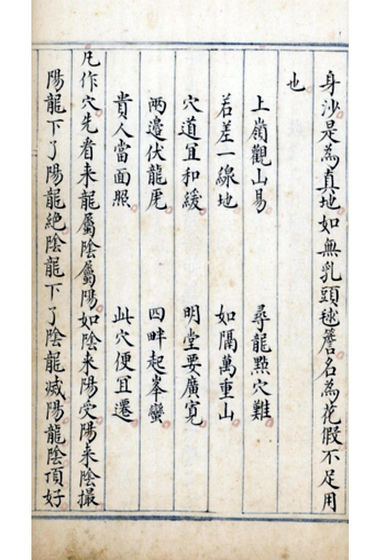 身沙是為真地如無乳頭毬簷名為花假不足用
也
上嶺觀山易　尋龍點穴難
若差一線地　如隔萬重山
穴道宜和緩　明堂要廣寬
兩邉伏龍虎　四畔起峯巒
貴人當面照　此穴便宜遷
凡作穴先看来龍屬陰屬陽如陰来陽受陽来陰撮
陽龍下了陽龍絶陰龍下了陰龍滅陽龍陰頂好